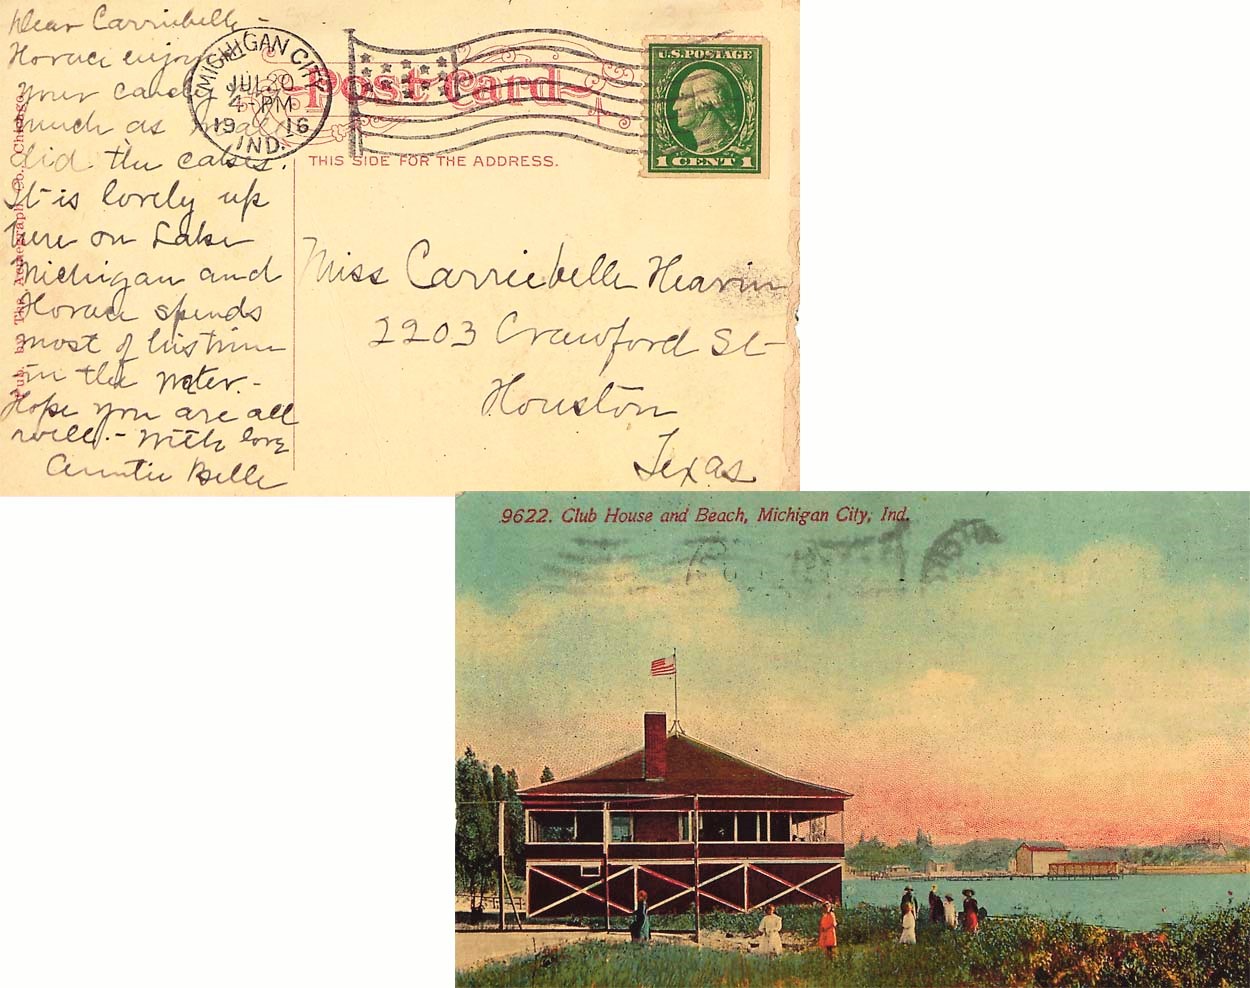 Dear Carriebelle -
Horace enjoyed
your candy
much as
did the cakes.
It is lovely up
here on Lake
Michigan and
Horace spends
most of his time
in the water. -
Hope you are all
well. - With love
Auntie Belle
Pub. by The Acmegraph Co., Chicago
MICHIGAN CITY
JUL 20
4-PM
1916
IND.
Post Card
THIS SIDE FOR THE ADDRESS.
U.S. POSTAGE
1 CENT 1
Miss Carriebelle Hearin
2203 Crawford St-
Houston
Texas.
9622. Club House and Beach, Michigan City, Ind.